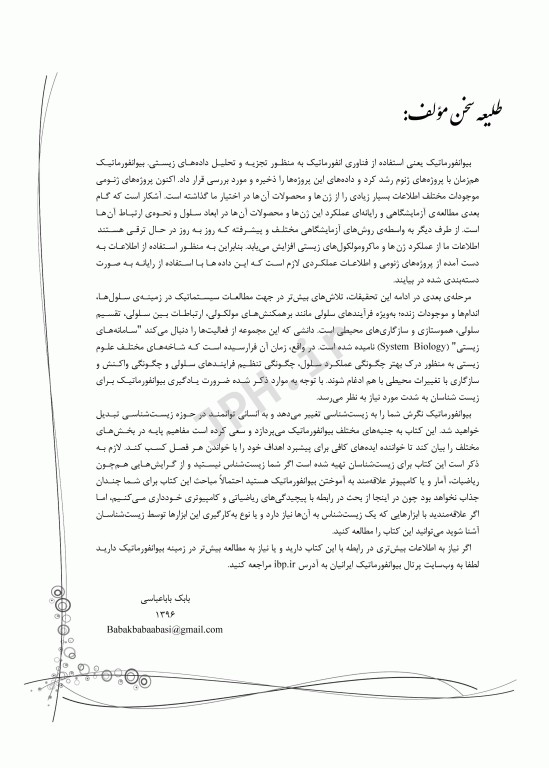 طلیعه سخن مؤلف:
بیوانفورماتیک یعنی استفاده از فناوری انفورماتیک به منظور تجزیه و تحلیل داده‌های زیستی. بیوانفورماتیک
هم‌زمان با پروژه‌های ژنوم رشد کرد و داده‌های این پروژه‌ها را ذخیره و مورد بررسی قرار داد. اکنون پروژه‌های ژنومی
موجودات مختلف اطلاعات بسیار زیادی را از ژن‌ها و محصولات آن‌ها در اختیار ما گذاشته است. آشکار است که گام
بعدی مطالعه ی آزمایشگاهی و رایانه‌ای عملکرد این ژن‌ها و محصولات آن‌ها در ابعاد سلول و نحوه‌ی ارتباط آن‌ها
است. از طرف دیگر به واسطه‌ی روش‌های آزمایشگاهی مختلف و پیشرفته که روز به روز در حال ترقی هستند
اطلاعات ما از عملکرد ژن‌ها و ماکرومولکول‌های زیستی افزایش می‌یابد. بنابراین به منظور استفاده از اطلاعات به
دست آمده از پروژه‌های ژنومی و اطلاعات عملکردی لازم است که این داده ها با استفاده از رایانه به صورت
دسته‌بندی شده در بیایند.
مرحله‌ی بعدی در ادامه این تحقیقات، تلاش‌های بیش‌تر در جهت مطالعات سیستماتیک در زمینه‌ی سلول‌ها،
اندام‌ها و موجودات زنده؛ به‌ویژه فرآیندهای سلولی مانند برهمکنش‌های مولکولی، ارتباطات بین سلولی، تقسیم
سلولی، هموستازی و سازگاری‌های محیطی است. دانشی که این مجموعه از فعالیت‌ها را دنبال می‌کند "سامانه‌های
زیستی" (System Biology) نامیده شده است. در واقع، زمان آن فرارسیده است که شاخه‌های مختلف علوم
زیستی به منظور درک بهتر چگونگی عملکرد سلول، چگونگی تنظیم فرایندهای سلولی و چگونگی واکنش و
سازگاری با تغییرات محیطی با هم ادغام شوند. با توجه به موارد ذکر شده ضرورت یادگیری بیوانفورماتیک برای
زیست شناسان به شدت مورد نیاز به نظر می‌رسد.
بیوانفورماتیک نگرش شما را به زیست‌شناسی تغییر می‌دهد و به انسانی توانمند در حوزه زیست‌شناسی تبدیل
خواهید شد. این کتاب به جنبه‌های مختلف بیوانفورماتیک می‌پردازد و سعی کرده است مفاهیم پایه در بخش‌های
مختلف را بیان کند تا خواننده ایده‌های کافی برای پیشبرد اهداف خود را با خواندن هر فصل کسب کند. لازم به
ذکر است این کتاب برای زیست‌شناسان تهیه شده است اگر شما زیست‌شناس نیستید و از گرایش‌هایی هم‌چون
ریاضیات، آمار و یا کامپیوتر علاقه‌مند به آموختن بیوانفورماتیک هستید احتمالاً مباحث این کتاب برای شما چندان
جذاب نخواهد بود چون در اینجا از بحث در رابطه با پیچیدگی‌های ریاضیاتی و کامپیوتری خودداری می‌کنیم، اما
اگر علاقه‌مندید با ابزارهایی که یک زیست‌شناس به آن‌ها نیاز دارد و یا نوع به‌کارگیری این ابزارها توسط زیست‌شناسان
آشنا شوید می‌توانید این کتاب را مطالعه کنید.
اگر نیاز به اطلاعات بیش‌تری در رابطه با این کتاب دارید و یا نیاز به مطالعه بیش‌تر در زمینه بیوانفورماتیک دارید
لطفا به وب‌سایت پرتال بیوانفورماتیک ایرانیان به آدرس ibp.ir مراجعه کنید.
بابک باباعباسی
۱۳۹۶
Babakbabaabasi@gmail.com
JPH.ir